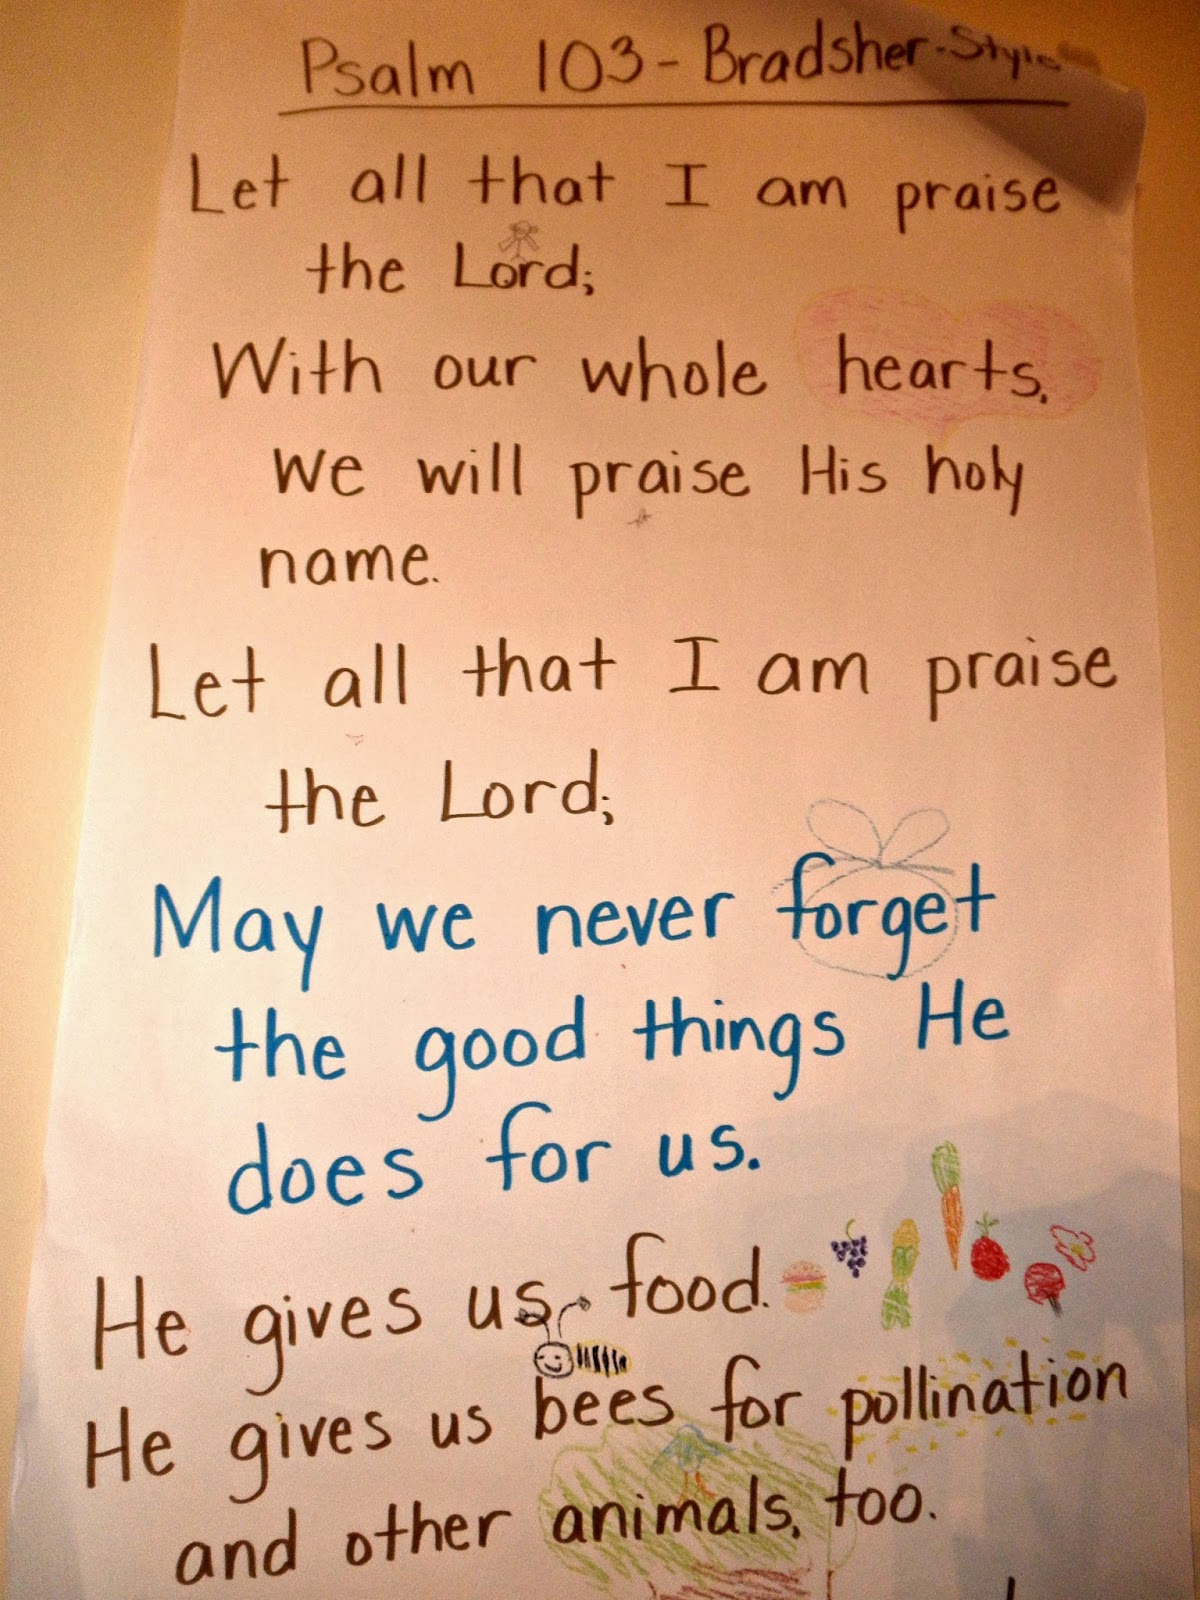 Psalm 103 - Bradsher-Style
Let all that I am praise
the Lord;
With our whole hearts,
we will praise His holy
name.
Let all that I am praise
the Lord;
May we never forget
the good things He
does for us.
He gives us food.
He gives us bees for pollination
and other animals, too.